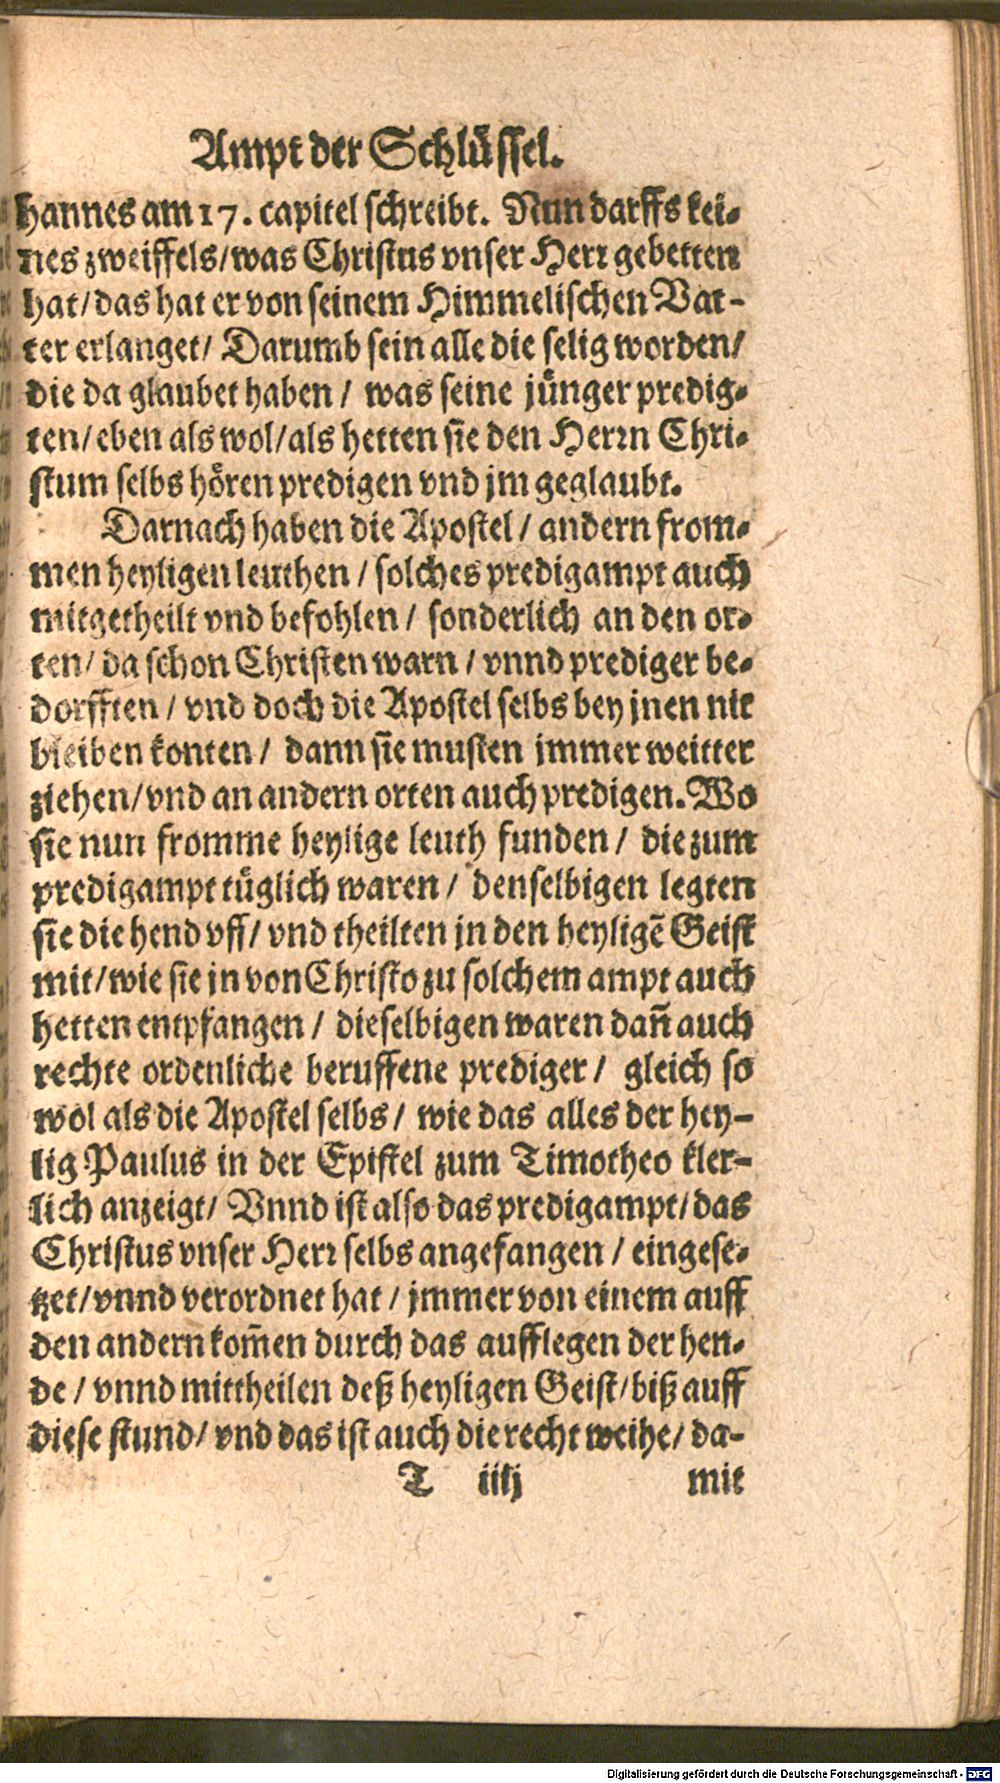 Ampt der Schlüssel.
hannes am 17. capitel schreibt. Nun darffs kei-
nes zweiffels/was Christus vnser Herr gebetten
hat/das hat er von seinem Himmelischen Vat-
ter erlanget/ Darumb sein alle die selig worden/
die da glaubet haben / was seine jünger predig-
ten/eben als wol/als hetten sie den Herrn Chri-
stum selbs hören predigen vnd jm geglaubt.
Darnach haben die Apostel / andern from-
men heyligen leuthen / solches predigampt auch
mitgetheilt vnd befohlen / sonderlich an den or-
ten/ da schon Christen warn / vnnd prediger be-
dorfften / vnd doch die Apostel selbs bey jnen nit
bleiben konten / dann sie musten jmmer weitter
ziehen/vnd an andern orten auch predigen. Wo
sie nun fromme heylige leuth funden / die zum
predigampt tüglich waren / denselbigen legten
sie die hend vff/ vnd theilten jn den heyligẽ Geist
mit/wie sie jn von Christo zu solchem ampt auch
hetten entpfangen / dieselbigen waren dañ auch
rechte ordenliche beruffene prediger / gleich so
wol als die Apostel selbs / wie das alles der hey-
lig Paulus in der Epistel zum Timotheo kler-
lich anzeigt/ Vnnd ist also das predigampt/das
Christus vnser Herr selbs angefangen / eingese-
tzet/vnnd verordnet hat / jmmer von einem auff
den andern kom̃en durch das aufflegen der hen-
de / vnnd mittheilen deß heyligen Geist/biß auff
diese stund/ vnd das ist auch die recht weihe/ da-
T iiij mit
Digitalisierung gefördert durch die Deutsche Forschungsgemeinschaft - DFG